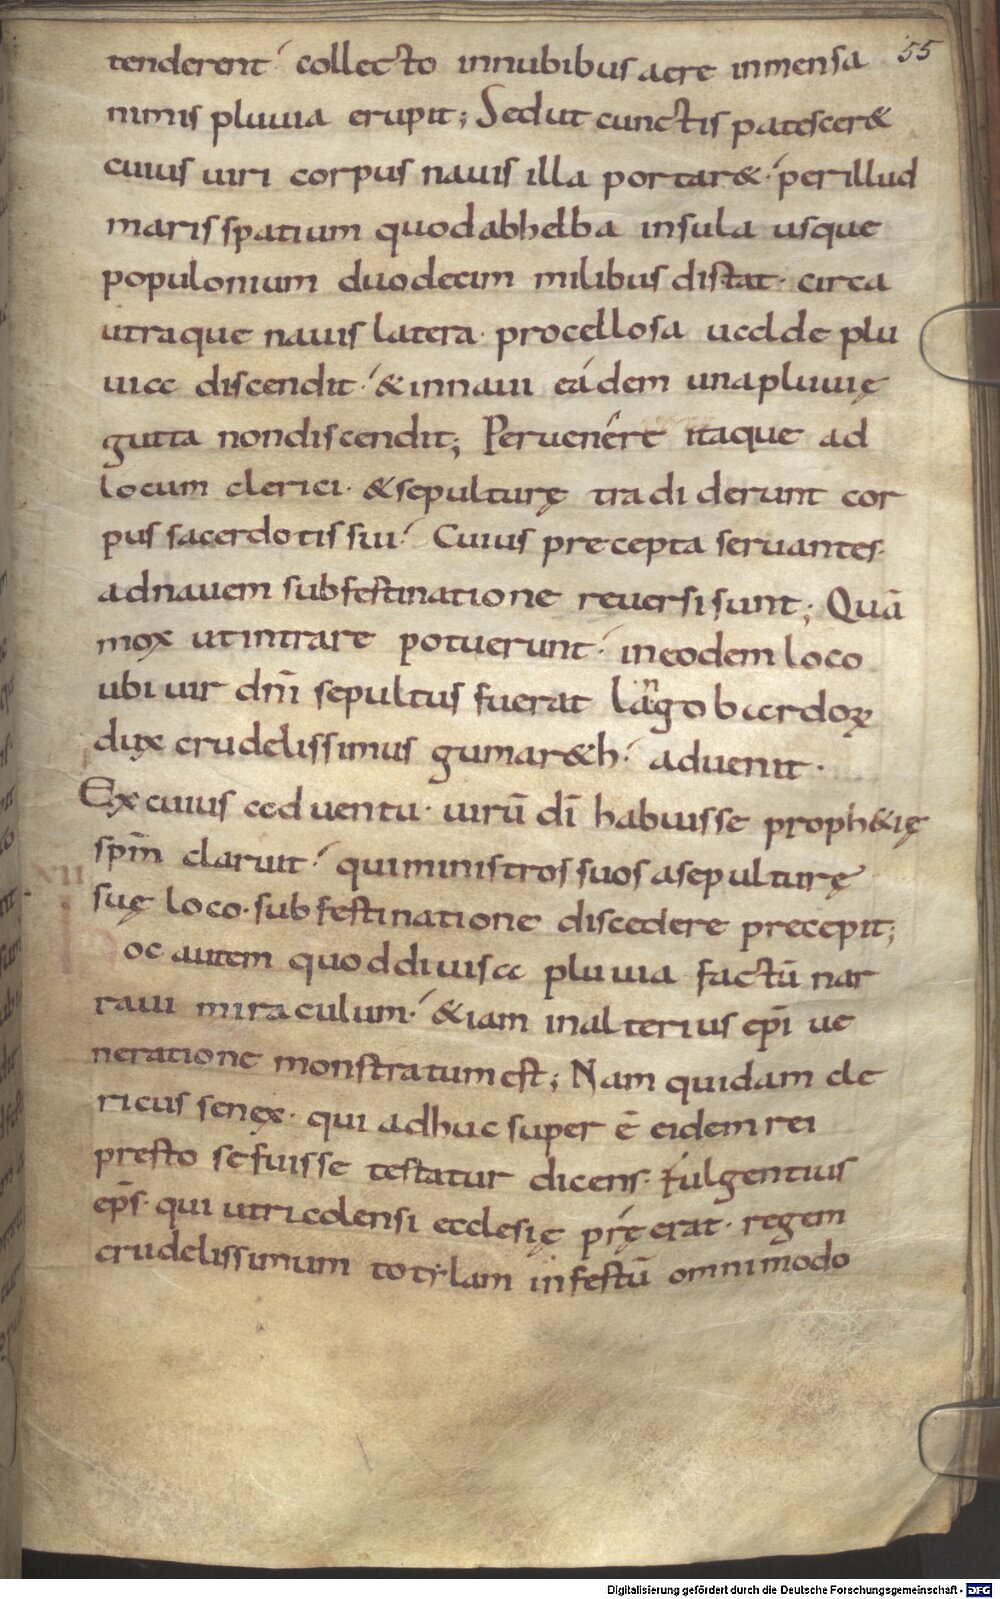 55
tenderent collecto innubibus aere inmensa
nimis pluuia erupit; Sedut cunctis patescer&
cuius uiri corpus nauis illa portar&. perillud
maris spatium quodabhelba insula usque
populonium duodecim milibus distat. circa
utraque nauis latera. procellosa ualde plu
uia discendit. & innaui eadem una pluuię
gutta nondiscendit; Peruenêre itaque ad
locum clerici. & sepulturę tradiderunt cor
pus sacerdotis sui. Cuius precepta seruantes.
adnauem subfestinatione reuersi sunt; Quā
mox utintrare potuerunt. ineodem loco
ubi uir dnī sepultus fuerat langobardoꝝ
dux crudelissimus gumar&h. aduenit.
Ex cuius aduentu. uirū dī habuisse proph&ię
spm̄ claruit. quiministros suos asepulturę
suę loco. subfestinatione discedere precepit;
XII
Hoc autem quoddiuisa pluuia factū nar
raui miraculum. & iam inalterius epī ue
neratione monstratum est; Nam quidam cle
ricus senex. qui adhuc super ē eidem rei
presto sefuisse testatur dicens. fulgentius
eps̄. qui utricolensi ecclesię pręerat. regem
crudelissimum totylam infestū omnimodo
Digitalisierung gefördert durch die Deutsche Forschungsgemeinschaft - DFG